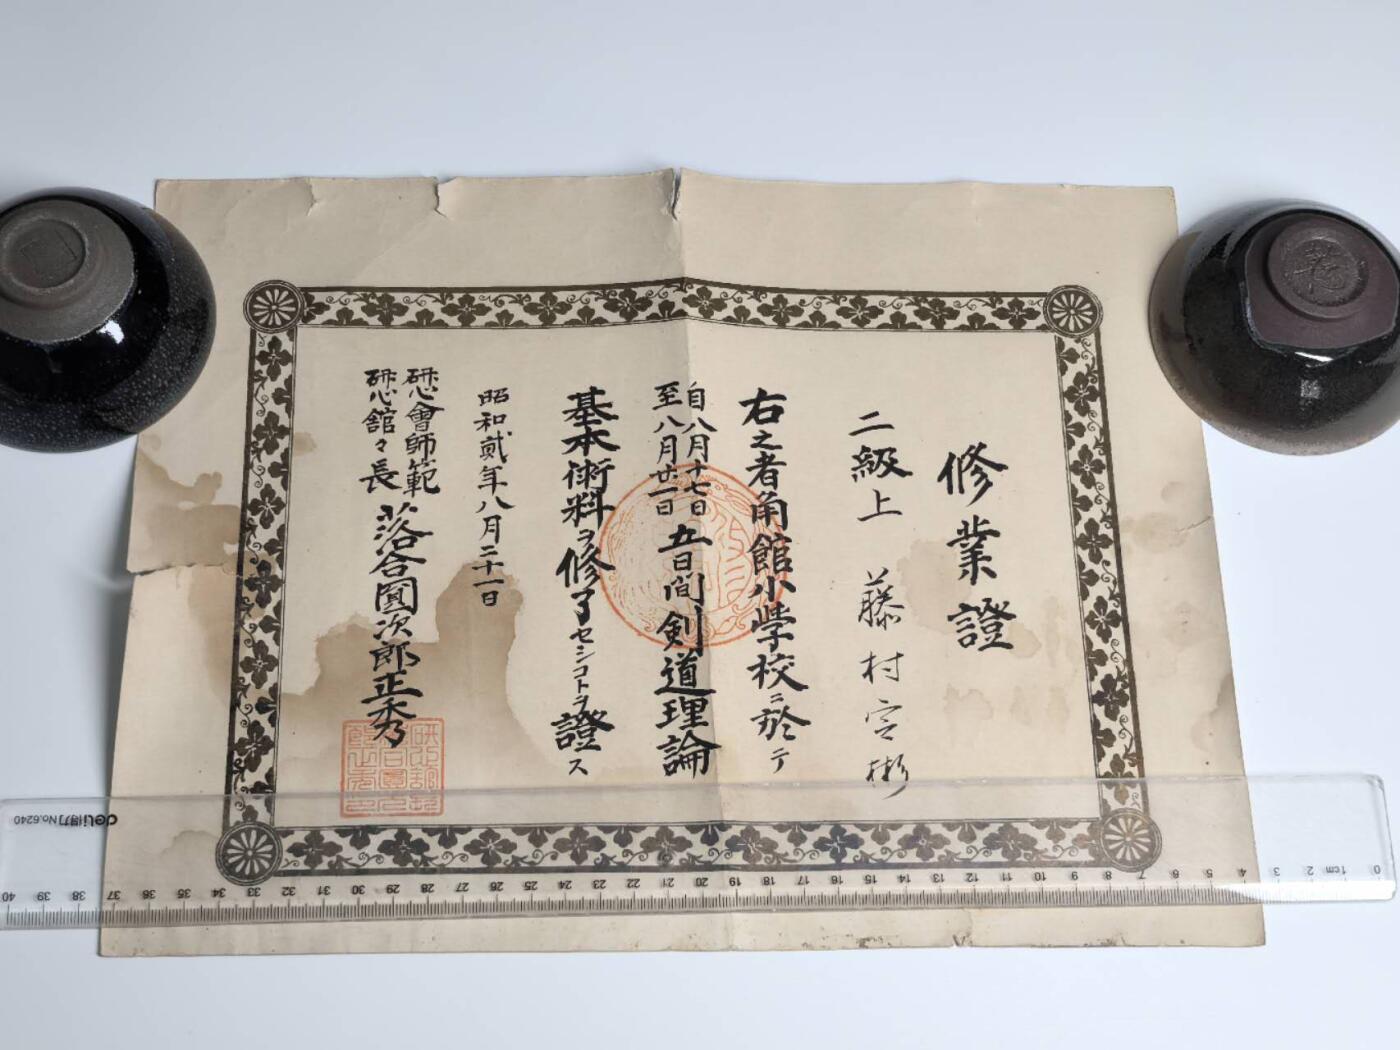 修業證
二級上 藤村宮彬
右之者角館小學校ニ於テ
自八月十七日
至八月廿一日
五日間剣道理論
基本術科ヲ修了セシコトヲ證ス
昭和貳年八月二十一日
研心會師範
研心舘々長
落合圓次郎正秀
deli 得力 No.6240
40 39 38 37 36 35 34 33 32 31 30 29 28 27 26 25 24 23 22 21 20 19 18 17 16 15 14 13 12 11 10 9 8 7 6 5 4 3 2 1cm 0